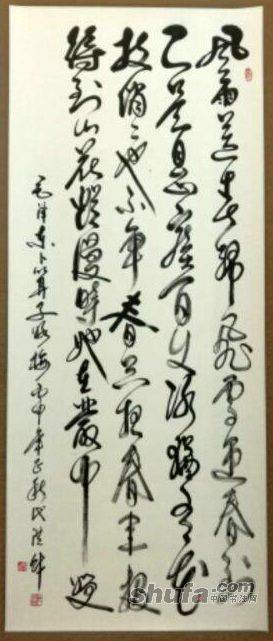 風雨送春歸飛雪迎春到
已是懸崖百丈冰猶有花
枝俏〻也不争春只把春来報
待到山花爛漫時她在叢中笑
毛泽东卜算子咏梅丙申年
shufa.com
中国书法网